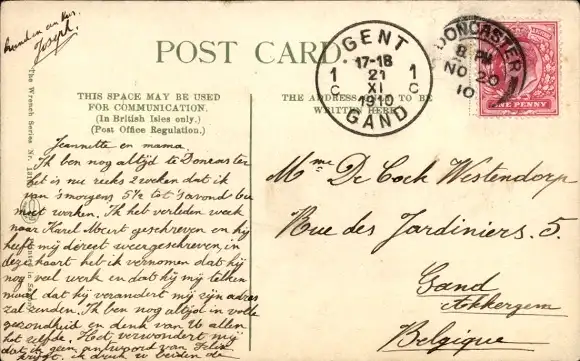 Joseph.
POST CARD
THIS SPACE MAY BE USED
FOR COMMUNICATION.
(In British Isles only.)
(Post Office Regulation.)
THE ADDRESS TO BE
WRITTEN HERE
The Wrench Series
GENT
17-18
21
XI
1910
1 C
1 C
GAND
DONCASTER
8 PM
NO 20
10
ONE PENNY
Jeannette en mama.
Ik ben nog altijd te Doncaster
het is nu reeks 2 weken dat ik
van 's morgens 5½ tot 's avond
moet werken. Ik het verleden week
naar Karel geschreven en hij
heeft mij direct weergeschreven, in
deze kaart het ik vernomen dat hij
nog veel werk en dat hij mij telken
maal dat hij verandert mij zijn adres
zal zenden. Ik ben nog altijd in volle
gezondheid en denk van U allen
het zelfde. Het verwondert mij
dat ik geen antwoord van Felix
krijg. ik druk u beiden de
Mme De Cock Westendorp
Rue des Jardiniers. 5.
Gand
Akkergem
Belgique